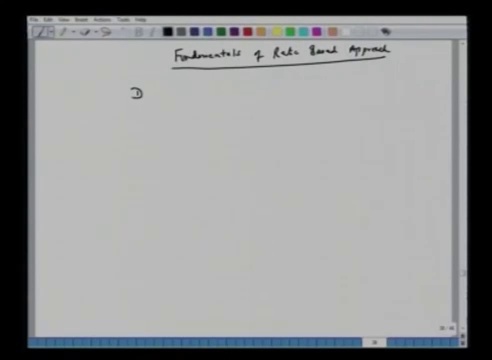 File Edit View Insert Actions Tools Help
Fundamentals of Rate Based Approach
D